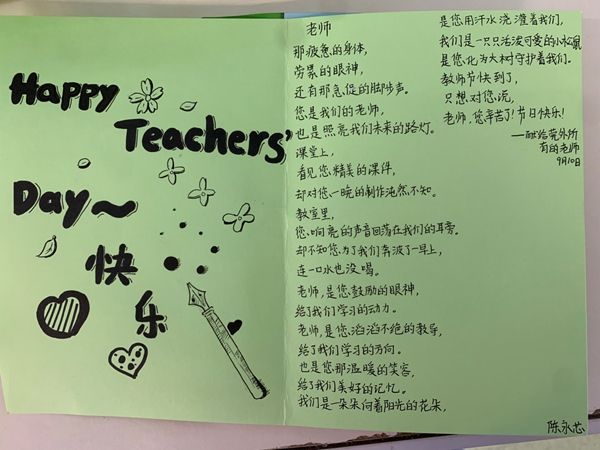 Happy
Teachers'
Day~
快
乐
老师
那疲惫的身体,
劳累的眼神,
还有那急促的脚步声。
您是我们的老师,
也是照亮我们未来的路灯。
课堂上,
看见您精美的课件,
却对您一晚的制作浑然不知。
教室里,
您响亮的声音回荡在我们的耳旁。
却不知您为了我们奔波了一早上,
连一口水也没喝。
老师,是您鼓励的眼神,
给了我们学习的动力。
老师,是您滔滔不绝的教导,
给了我们学习的方向。
也是您那温暖的笑容,
给了我们美好的记忆。
我们是一朵朵向着阳光的花朵,
是您用汗水浇灌着我们,
我们是一只只活泼可爱的小松鼠
是您化为大树守护着我们。
教师节快到了,
只想对您说,
老师,您辛苦了!节日快乐!
——献给莞外所
有的老师
9月10日
陈永芯